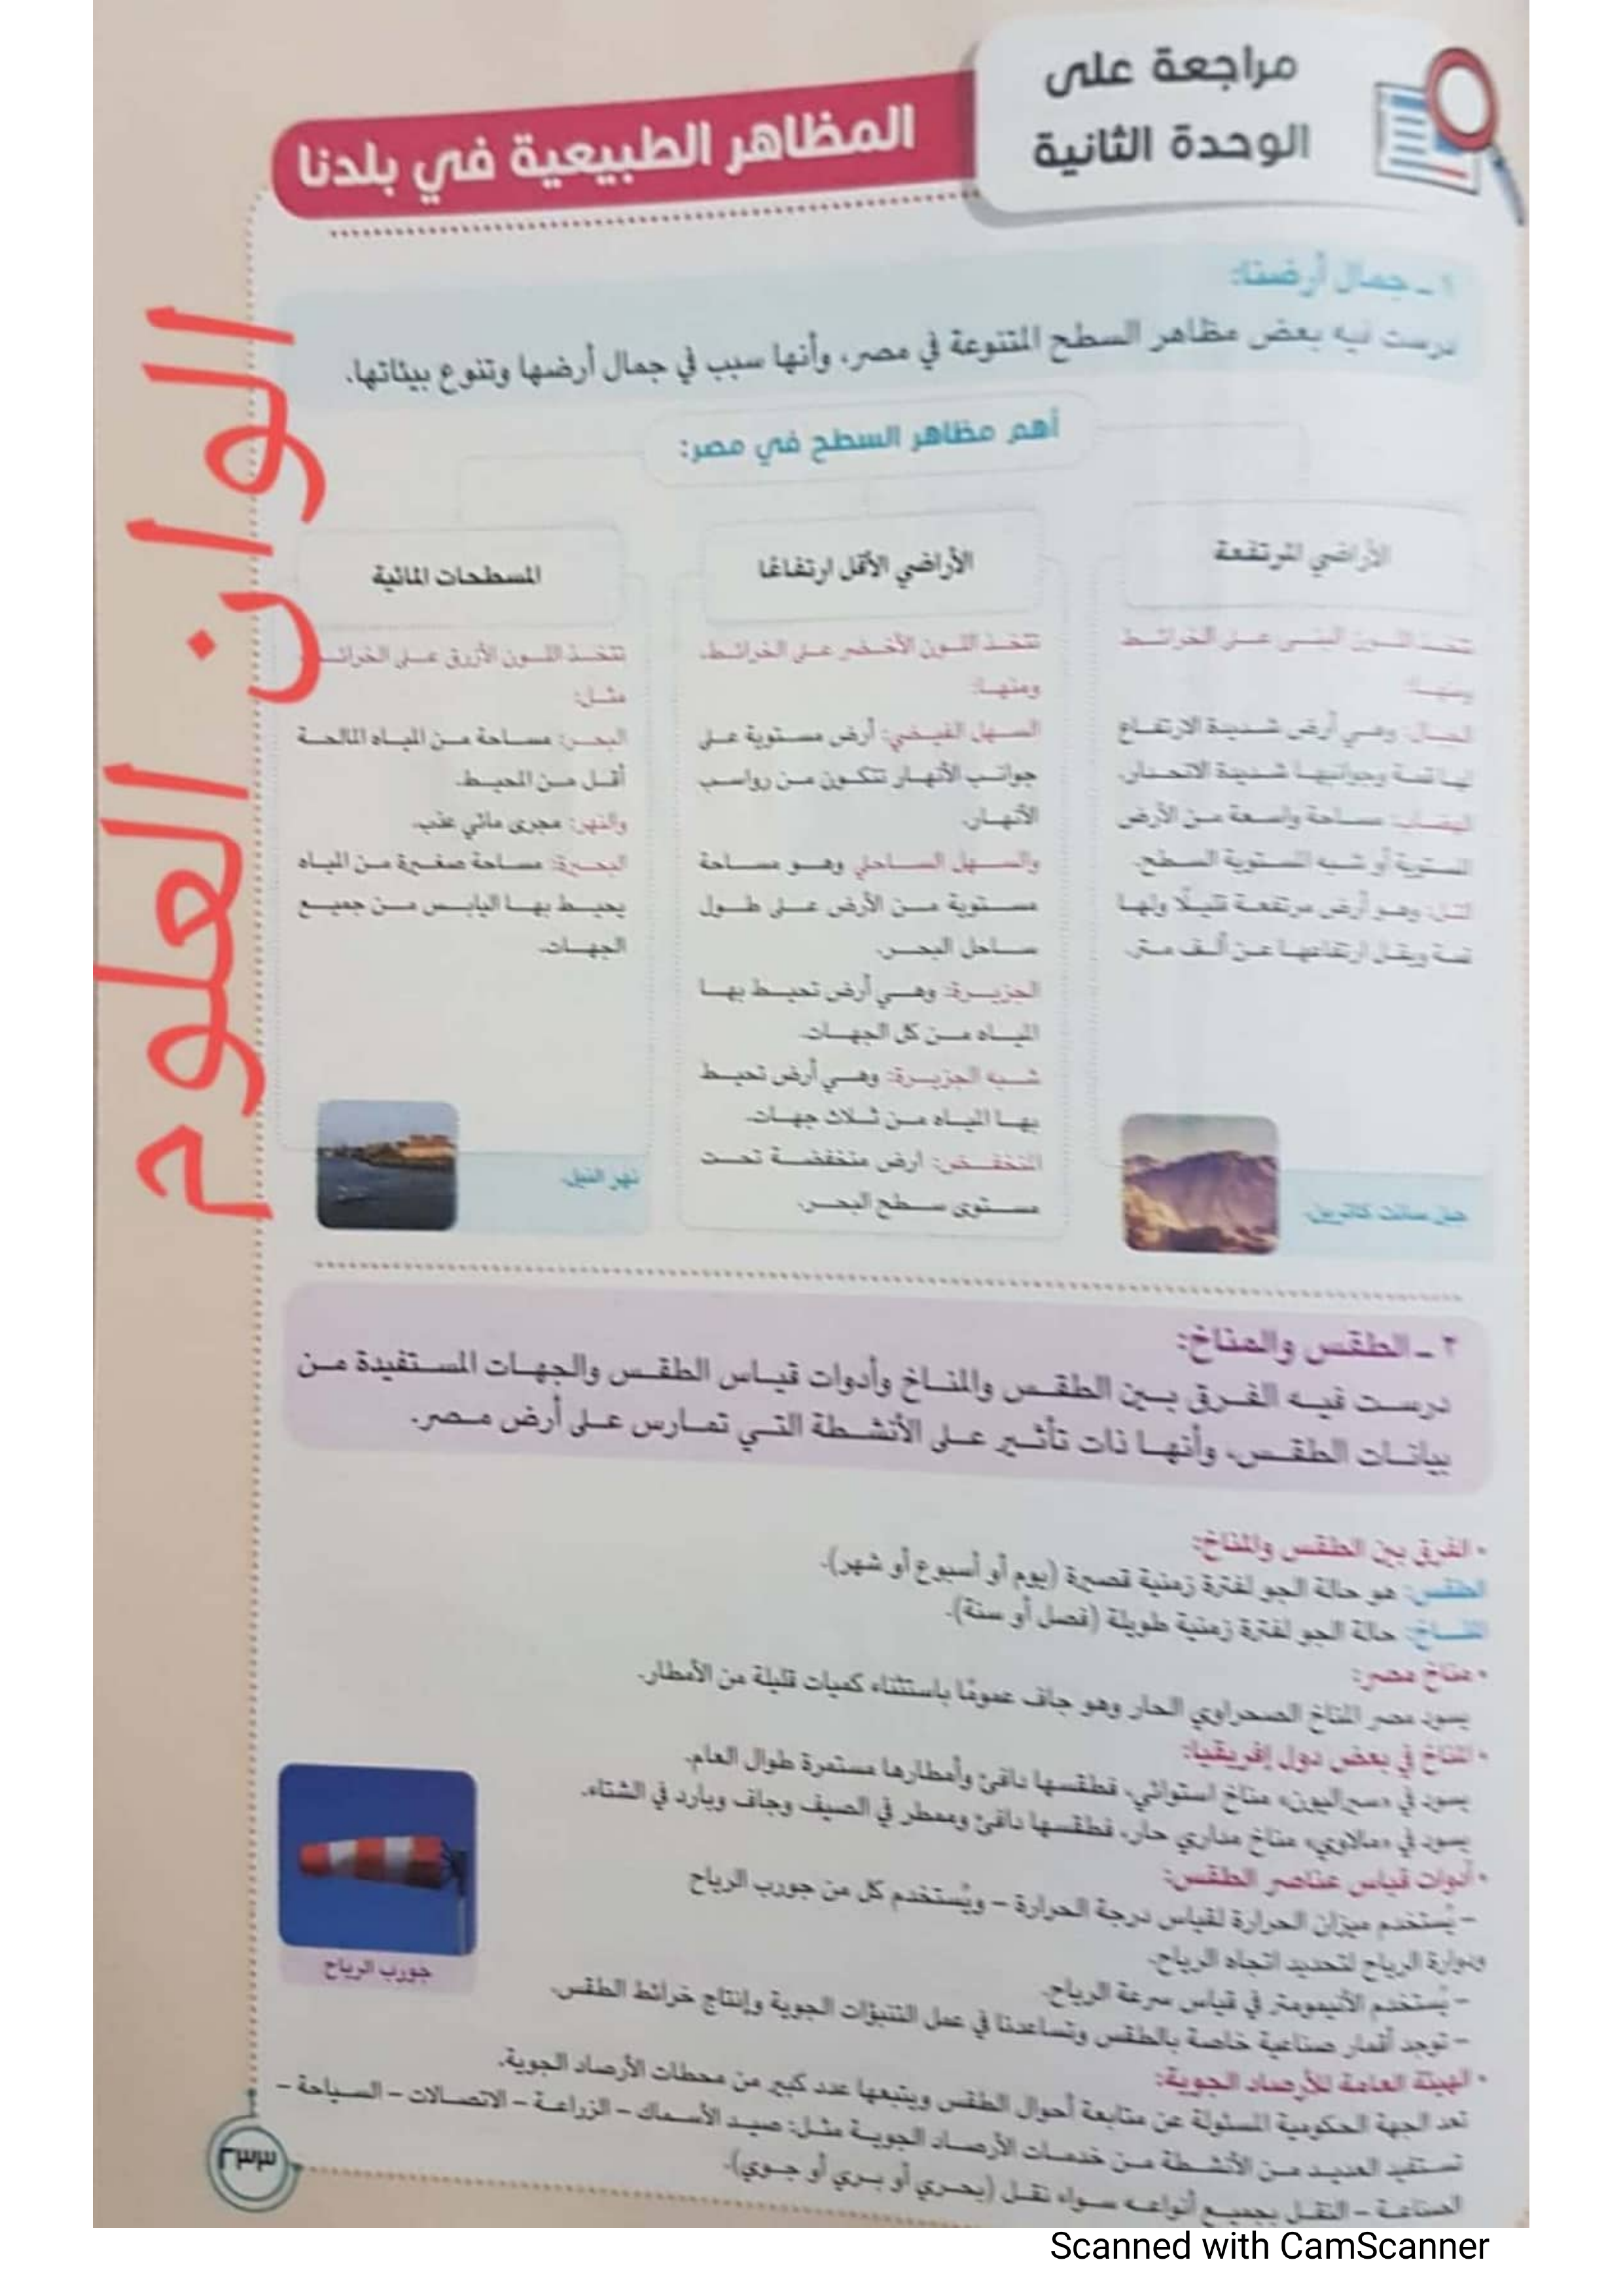 مراجعة على
الوحدة الثانية
المظاهر الطبيعية في بلدنا
١ - جمال أرضنا:
درست فيه بعض مظاهر السطح المتنوعة في مصر، وأنها سبب في جمال أرضها وتنوع بيئاتها.
أهم مظاهر السطح في مصر:
الأراضي المرتفعة
تتخذ اللون البني على الخرائط
ومنها:
الجبال: وهي أرض شديدة الارتفاع
لها قمة وجوانبها شديدة الانحدار.
الهضاب: مساحة واسعة من الأرض
المستوية أو شبه المستوية السطح.
التل: وهو أرض مرتفعة قليلًا ولها
قمة ويقل ارتفاعها عن ألف متر.
جبل سانت كاترين.
الأراضي الأقل ارتفاعًا
تتخذ اللون الأخضر على الخرائط،
ومنها:
السهل الفيضي: أرض مستوية على
جوانب الأنهار تتكون من رواسب
الأنهار.
والسهل الساحلي وهو مساحة
مستوية من الأرض على طول
ساحل البحر.
الجزيرة: وهي أرض تحيط بها
المياه من كل الجهات.
شبه الجزيرة: وهي أرض تحيط
بها المياه من ثلاث جهات.
المنخفض: أرض منخفضة تحت
مستوى سطح البحر.
المسطحات المائية
تتخذ اللون الأزرق على الخرائط
مثل:
البحر: مساحة من المياه المالحة
أقل من المحيط.
والنهر: مجرى مائي عذب.
البحيرة: مساحة صغيرة من المياه
يحيط بها اليابس من جميع
الجهات.
نهر النيل.
٢ - الطقس والمناخ:
درست فيه الفرق بين الطقس والمناخ وأدوات قياس الطقس والجهات المستفيدة من
بيانات الطقس، وأنها ذات تأثير على الأنشطة التي تمارس على أرض مصر.
• الفرق بين الطقس والمناخ:
الطقس: هو حالة الجو لفترة زمنية قصيرة (يوم أو أسبوع أو شهر).
المناخ: حالة الجو لفترة زمنية طويلة (فصل أو سنة).
• مناخ مصر:
يسود مصر المناخ الصحراوي الحار وهو جاف عمومًا باستثناء كميات قليلة من الأمطار.
• المناخ في بعض دول إفريقيا:
يسود في «سيراليون» مناخ استوائي، فطقسها دافئ وأمطارها مستمرة طوال العام.
يسود في «مالاوي» مناخ مداري حار، فطقسها دافئ وممطر في الصيف وجاف وبارد في الشتاء.
• أدوات قياس عناصر الطقس:
- يُستخدم ميزان الحرارة لقياس درجة الحرارة - ويُستخدم كل من جورب الرياح
ودوارة الرياح لتحديد اتجاه الرياح.
- يُستخدم الأنيمومتر في قياس سرعة الرياح.
- توجد أقمار صناعية خاصة بالطقس وتساعدنا في عمل التنبؤات الجوية وإنتاج خرائط الطقس.
جورب الرياح
• الهيئة العامة للأرصاد الجوية:
تعد الجهة الحكومية المسئولة عن متابعة أحوال الطقس ويتبعها عدد كبير من محطات الأرصاد الجوية.
تستفيد العديد من الأنشطة من خدمات الأرصاد الجوية مثل: صيد الأسماك - الزراعة - الاتصالات - السياحة -
الصناعة - النقل بجميع أنواعه سواء نقل (بحري أو بري أو جوي).
٢٣٣
الوان العلوم
Scanned with CamScanner